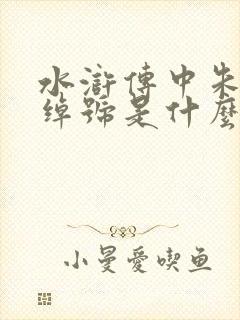 水滸傳中朱
綽號是什麼
小曼愛喫鱼